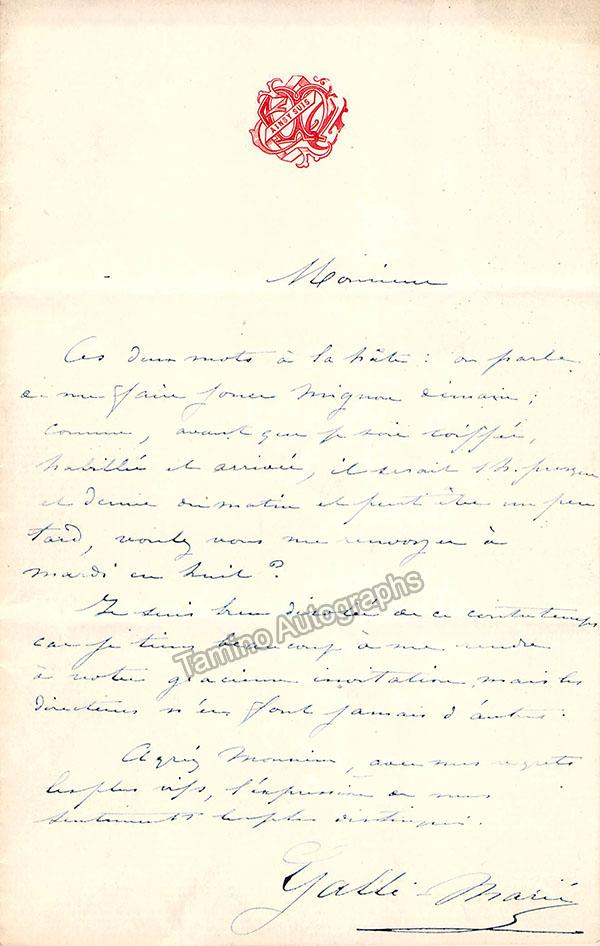 AINSY SUIS
Monsieur
Ces deux mots à la hâte : on parle
de me faire jouer Mignon demain ;
comme, avant que je sois coiffée,
habillée et arrivée, il serait 1 h. presque
et demie du matin et peut être un peu
tard, voulez vous me renvoyer à
mardi en huit ?
Je suis bien désolée de ce contretemps
car je tiens beaucoup à me rendre
à votre gracieuse invitation, mais les
directeurs n'en font jamais d'autres.
Agréez Monsieur, avec mes regrets
les plus vifs, l'expression de mes
sentiments les plus distingués.
Galli-Marié
Tamino Autographs